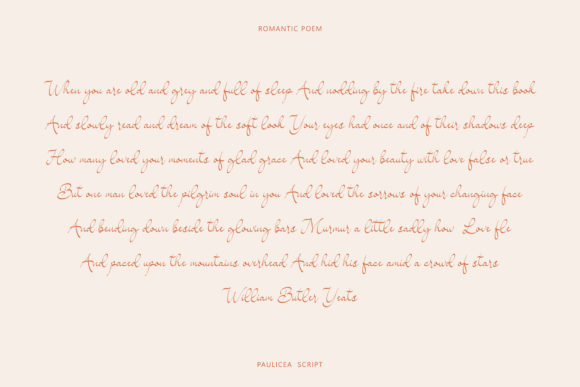 ROMANTIC POEM
When you are old and grey and full of sleep And nodding by the fire take down this book
And slowly read and dream of the soft look Your eyes had once and of their shadows deep
How many loved your moments of glad grace And loved your beauty with love false or true
But one man loved the pilgrim soul in you And loved the sorrows of your changing face
And bending down beside the glowing bars Murmur a little sadly how Love fle
And paced upon the mountains overhead And hid his face amid a crowd of stars
William Butler Yeats
PAULICEA SCRIPT